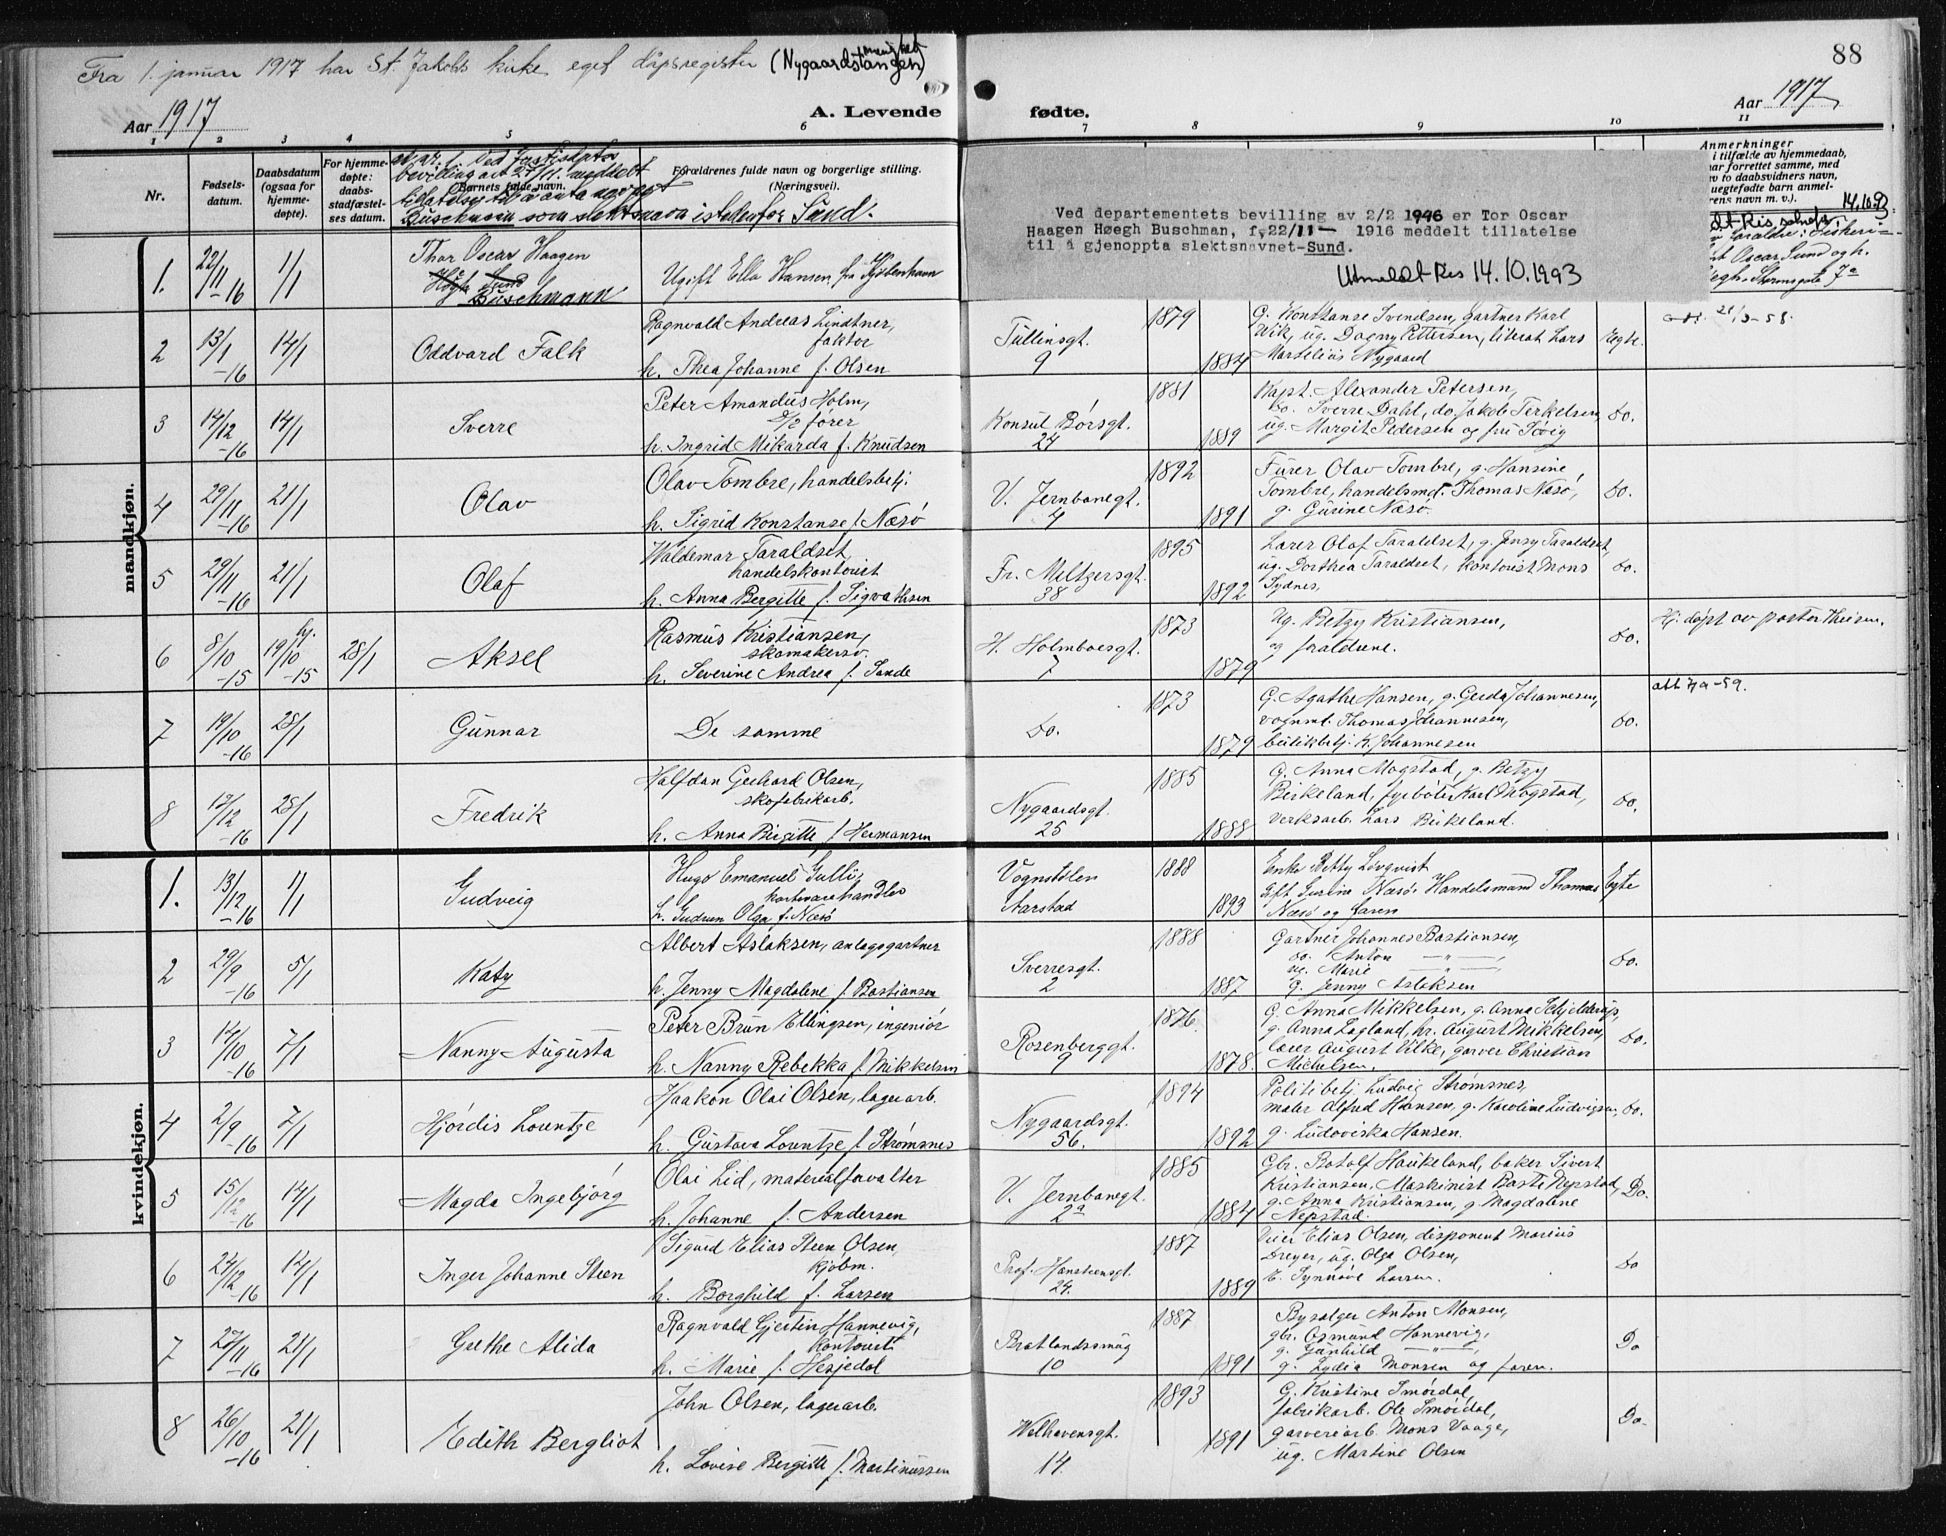 Fra 1. januar 1917 har St. Jakobs kirke eget dåpsregister (Nygaardstangen menighet)
88
Aar 1917
A. Levende
fødte.
Aar 1917
1 2 3 4 5 6 7 8 9 10 11
Nr.
Fødsels-
datum.
Daabsdatum
(ogsaa for
hjemme-
døpte).
For hjemme-
døpte:
daabs-
stadfæstel-
ses datum.
Barnets fulde navn.
Buschmann som slektsnavn istedenfor Sund.
Forældrenes fulde navn og borgerlige stilling.
(Næringsvei).
Anmerkninger
i tilfælde av hjemmedaab,
har forrettet samme, med
v to daabsvidners navn,
uegtefødte barn anmel-
rens navn m. v.).
14.10.93
Ved departementets bevilling av 2/2 1946 er Tor Oscar
Haagen Høegh Buschman, f. 22/11 — 1916 meddelt tillatelse
til å gjenoppta slektsnavnet Sund.
Utmeldt Kis 14.10.1993
mandkjøn.
1. 22/11-16 1/1 Thor Oscar Haagen
Høgh Sund
Buschmann
Ugift Ella Hansen, fra Kjøbenhavn
Oscar Sund og h.
2 13/1-16 14/1 Oddvard Falk
Ragnvald Andreas Lindtner,
faktor
h. Thea Johanne f. Olsen
Tullinsgt.
9
1879
1884
G. Konstanse Svendsen, gartner Karl
Wik, ug. Dagny Pettersen, literat Lars
Martelius Nygaard
Ægte.
3 14/12-16 14/1 Sverre
Peter Amandus Holm,
D/S fører
h. Ingrid Mikarda f. Knudsen
Konsul Børsgt.
24
1881
1889
Kapt. Alexander Petersen,
do. Sverre Dahl, do. Jakob Terkelsen,
ug. Margit Pedersen og fru
do.
4 29/11-16 21/1 Olav
Olav Tombre, handelsbetj.
h. Sigrid Konstanse f. Næsø
V. Jernbanegt.
4
1892
1891
Fører Olav Tombre, g. Hansine
Tombre, handelsmd. Thomas Næsø,
g. Gurine Næsø
do.
5 29/11-16 21/1 Olaf
Waldemar Taraldset,
handelskontorist
h. Anna Bergitte f. Sigvathsen
Fr. Meltzersgt.
38
1895
1892
Lærer Olaf Taraldset, g. Jensy Taraldset,
ug. Dorthea Taraldset, kontorist Mons
Sydnes,
do.
6 8/10-15 hj. 19/10-15 28/1 Aksel
Rasmus Kristiansen,
skomakersv.
h. Severine Andrea f. Sande
H. Holmboesgt.
7
1873
1879
Ug. Betzy Kristiansen,
og foreldrene.
do.
Hj. døpt av pastor Theisen.
7 19/10-16 28/1 Gunnar
De samme
do.
1873
1879
G. Agathe Hansen, g. Gerda Johannesen,
vognmt. Thomas Johannesen,
butikbetj. K. Johannesen
do.
8 12/12-16 28/1 Fredrik
Halfdan Gerhard Olsen,
skofabrikarb.
h. Anna Birgitte f. Hermansen
Nygaardsgt.
25
1885
1888
G. Anna Mogstad, g. Betzy
Birkeland, fyrbøter Karl Mogstad,
verksarb. Lars Birkeland.
do.
kvindekjøn.
1. 13/12-16 1/1 Gudveig
Hugo Emanuel Gulli,
kortevarehandler
h. Gudrun Olga f. Næsø
Vognstølen
Aarstad
1888
1893
Enke Betty Løvqvist
Gift Gurine Næsø. Handelsmand Thomas
Næsø og faren
Egte
2 29/9-16 5/1 Katy
Albert Aslaksen, anlagsgartner
h. Jenny Magdalene f. Bastiansen
Sverresgt.
2
1888
1887
Gartner Johannes Bastiansen,
do. Anton — " —,
ug. Marie — " —,
g. Jenny Aslaksen
do.
3 14/10-16 7/1 Nanny Augusta
Peter Brun Ellingsen, ingeniør
h. Nanny Rebekka f. Mikkelsen
Rosenberggt.
9
1876
1878
G. Anna Mikkelsen, g. Anna Schjelderup,
g. Anna Lagland, hr. August Mikkelsen,
lærer August Vilke, garver Christian
Michelsen.
do.
4 2/9-16 7/1 Hjørdis Lountze
Haakon Olai Olsen, lagerarb.
h. Gustava Lountze f. Strømsnes
Nygaardsgt.
56.
1894
1892
Politibetj. Ludvig Strømsnes,
maler Alfred Hansen, g. Karoline Ludvigsen,
g. Ludoviska Hansen.
do.
5 15/12-16 14/1 Magda Ingebjørg
Olai Lid, materialforvalter
h. Johanne f. Andersen
V. Jernbanegt.
2a
1885
1884
Gbr. Botolf Haukeland, baker Sivert
Kristiansen, Maskinist Basti Nepstad,
g. Anna Kristiansen, g. Magdalene
Nepstad.
Do.
6 24/12-16 14/1 Inger Johanne Steen
Sigurd Elias Steen Olsen,
kjøbm.
h. Borghild f. Larsen
Prof. Hansteensgt.
24.
1887
1889
Elias Olsen, disponent Marius
Dreyer, ug. Olga Olsen,
E. Synnøve Larsen.
Do
7 27/11-16 21/1 Grethe Alida
Ragnvald Gjertin Hannevig,
kontorist
h. Marie f. Hesjedal
Bratlandssmug
10
1887
1891
Bysælger Anton Monsen,
gbr. Osmund Hannevig,
g. Gunhild — " —,
g. Lydia Monsen og faren.
Do
8 26/10-16 21/1 Edith Bergliot
John Olsen, lagerarb.
h. Lovise Bergitte f. Martinussen
Welhavensgt.
14.
1893
1891
G. Kristine Smørdal,
fabrikarb. Ole Smørdal,
garveriarb. Mons Vaage,
ug. Martine Olsen
Do.